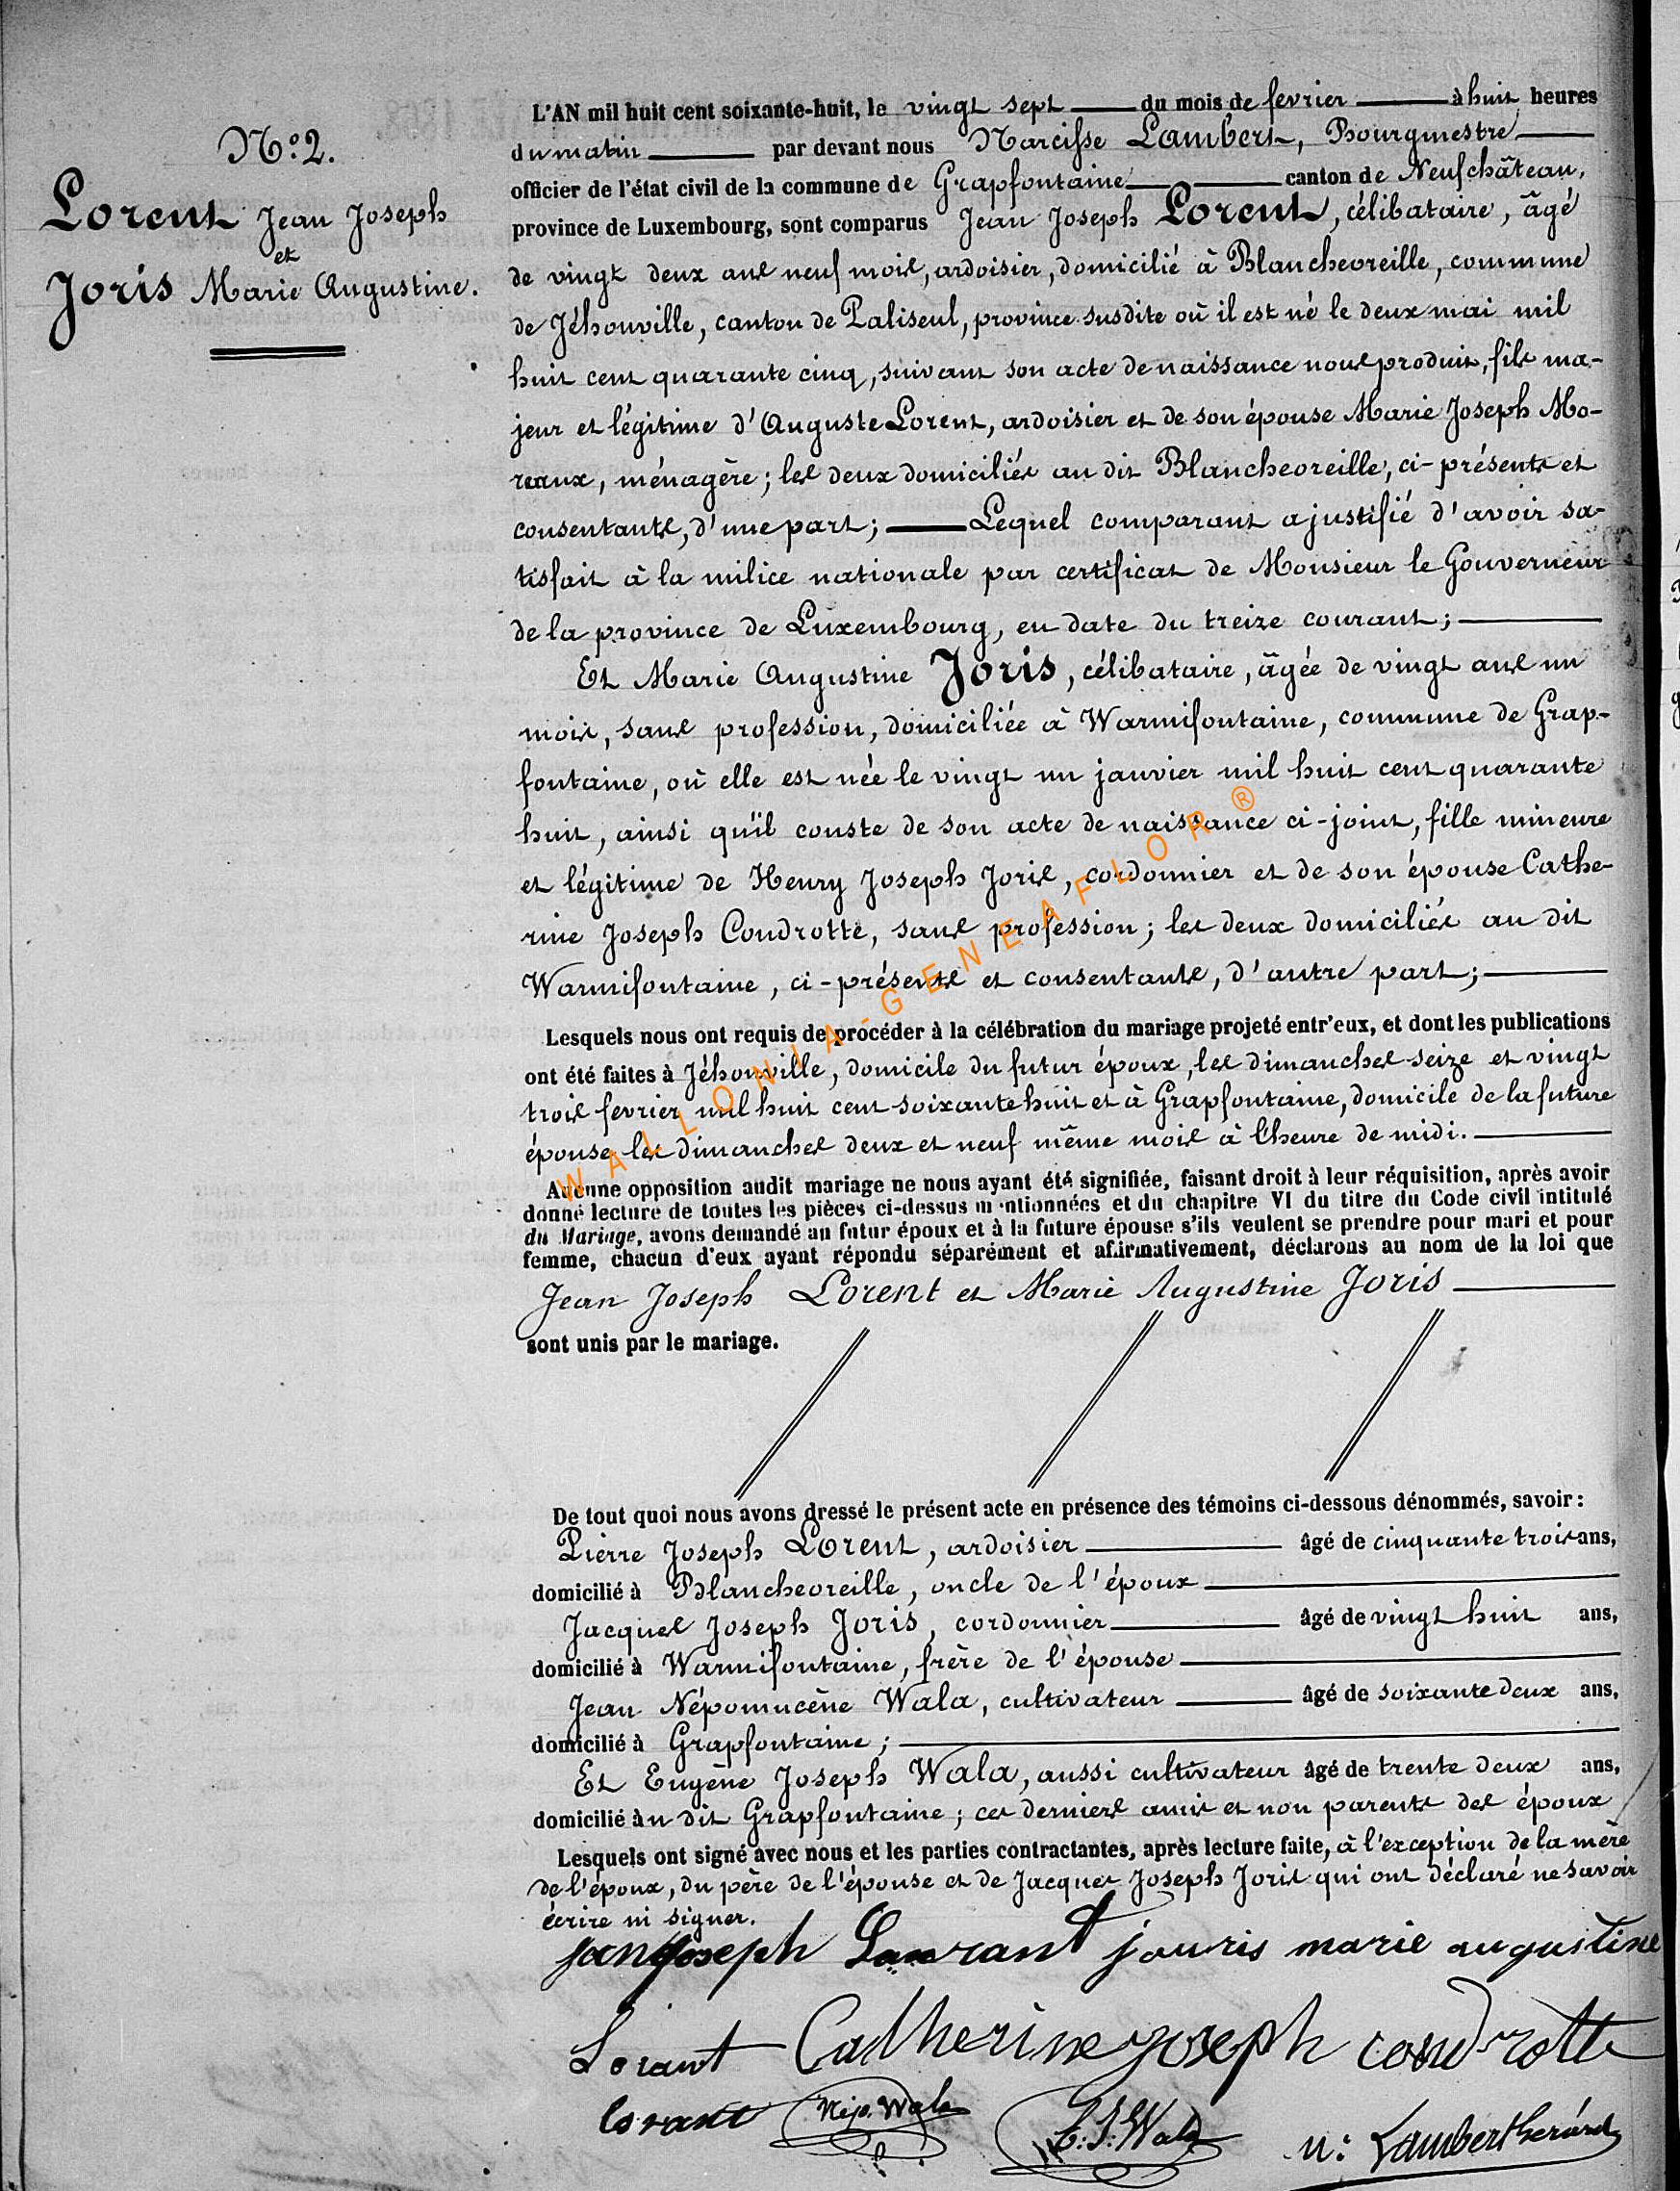 N.º 2.
Lorent Jean Joseph
et
Joris Marie Augustine.
L'AN mil huit cent soixante-huit, le vingt sept du mois de fevrier à huit heures
du matin par devant nous Narcisse Lambert, Bourgmestre
officier de l'état civil de la commune de Grapfontaine canton de Neufchâteau,
province de Luxembourg, sont comparus Jean Joseph Lorent, célibataire, âgé
de vingt deux ans neuf mois, ardoisier, domicilié à Blancheoreille, commune
de Jéhonville, canton de Paliseul, province susdite où il est né le deux mai mil
huit cent quarante cinq, suivant son acte de naissance nous produit, fils ma-
jeur et légitime d'Auguste Lorent, ardoisier et de son épouse Marie Joseph Mo-
reaux, ménagère; les deux domiciliés au dit Blancheoreille, ci-présents et
consentants, d'une part; Lequel comparant a justifié d'avoir sa-
tisfait à la milice nationale par certificat de Monsieur le Gouverneur
de la province de Luxembourg, en date du treize courant;
Et Marie Augustine Joris, célibataire, âgée de vingt ans un
mois, sans profession, domiciliée à Warmifontaine, commune de Grap-
fontaine, où elle est née le vingt un janvier mil huit cent quarante
huit, ainsi qu'il conste de son acte de naissance ci-joint, fille mineure
et légitime de Henry Joseph Joris, cordonnier et de son épouse Cathe-
rine Joseph Condrotte, sans profession; les deux domiciliés au dit
Warmifontaine, ci-présents et consentants, d'autre part;
Lesquels nous ont requis de procéder à la célébration du mariage projeté entr'eux, et dont les publications
ont été faites à Jéhonville, domicile du futur époux, les dimanches seize et vingt
trois fevrier mil huit cent soixante huit et à Grapfontaine, domicile de la future
épouse, les dimanches deux et neuf même mois à l'heure de midi.
Aucune opposition audit mariage ne nous ayant été signifiée, faisant droit à leur réquisition, après avoir
donné lecture de toutes les pièces ci-dessus mentionnées et du chapitre VI du titre du Code civil intitulé
du Mariage, avons demandé au futur époux et à la future épouse s'ils veulent se prendre pour mari et pour
femme, chacun d'eux ayant répondu séparément et affirmativement, déclarons au nom de la loi que
Jean Joseph Lorent et Marie Augustine Joris
sont unis par le mariage.
WALLONIA-GENEAFLOR®
De tout quoi nous avons dressé le présent acte en présence des témoins ci-dessous dénommés, savoir:
Pierre Joseph Lorent, ardoisier âgé de cinquante trois ans,
domicilié à Blancheoreille, oncle de l'époux
Jacques Joseph Joris, cordonnier âgé de vingt huit ans,
domicilié à Warmifontaine, frère de l'épouse
Jean Népomucène Wala, cultivateur âgé de soixante deux ans,
domicilié à Grapfontaine;
Et Eugène Joseph Wala, aussi cultivateur âgé de trente deux ans,
domicilié àu dit Grapfontaine; ces derniers amis et non parents des époux
Lesquels ont signé avec nous et les parties contractantes, après lecture faite, à l'exception de la mère
de l'époux, du père de l'épouse et de Jacques Joseph Joris qui ont déclaré ne savoir
écrire ni signer.
jan joseph Laurant jouris marie augustine
Lorant Catherine joseph condrotte
lorant Nép. Wala E.J. Wala N: Lambert Gérard